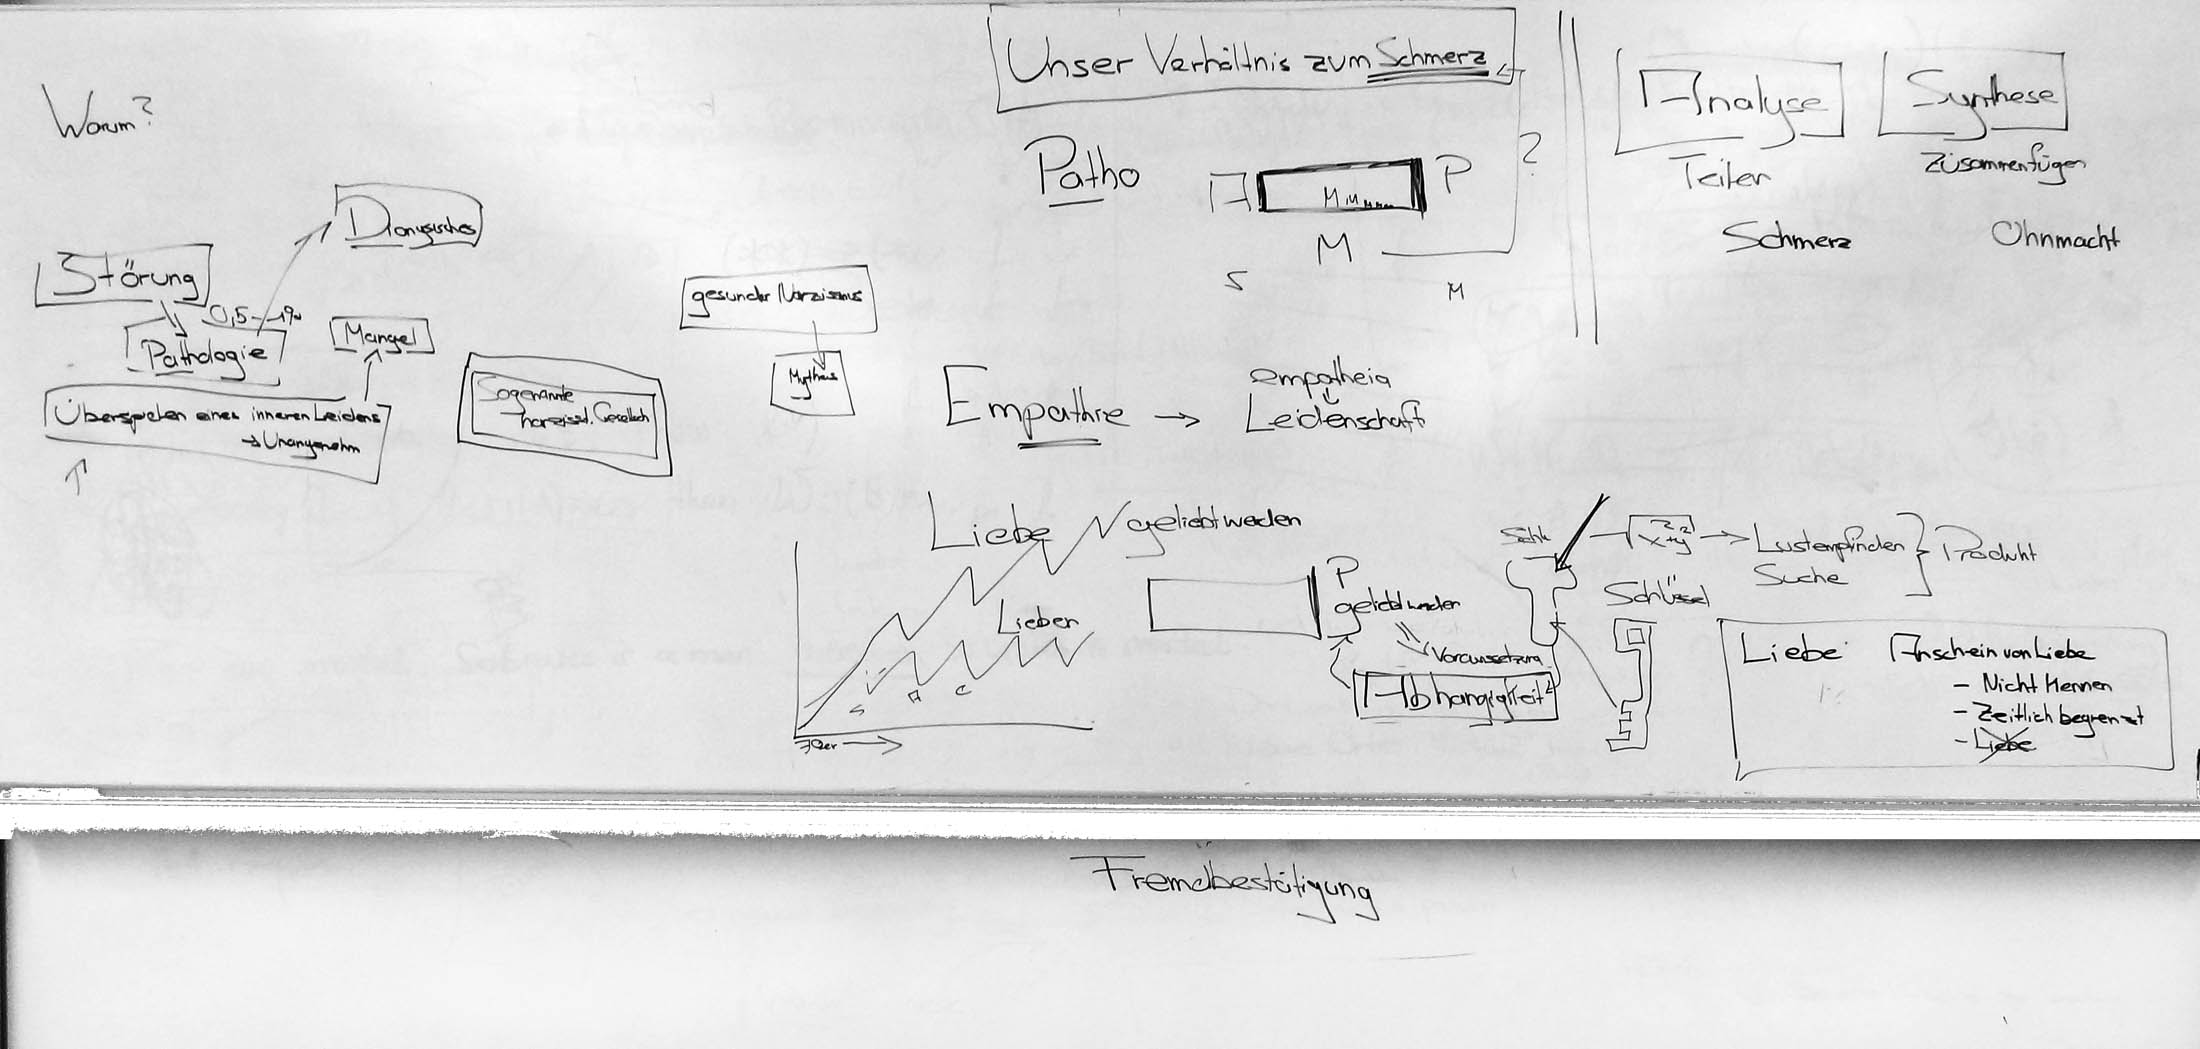 Unser Verhältnis zum Schmerz
Analyse
Synthese
Teilen
Zusammenfügen
Schmerz
Ohnmacht
Warum?
Patho
A
P
?
M
S
M
Dionysisches
Störung
0,5-1%
Pathologie
Mangel
gesunder Narzissmus
Mythos
Überspielen eines inneren Leidens
→ Unangenehm
Sogenannte
narzisst. Gesellsch
Empathie →
empatheia
Leidenschaft
Liebe
geliebt werden
Lieben
S
A
C
70er →
P
geliebt werden
Voraussetzung
Abhängigkeit
x²+y² → Lustempfinden
Suche
Produkt
Schlüssel
Liebe:
Anschein von Liebe
- Nicht Kennen
- Zeitlich begrenzt
- Liebe
Fremdbestätigung